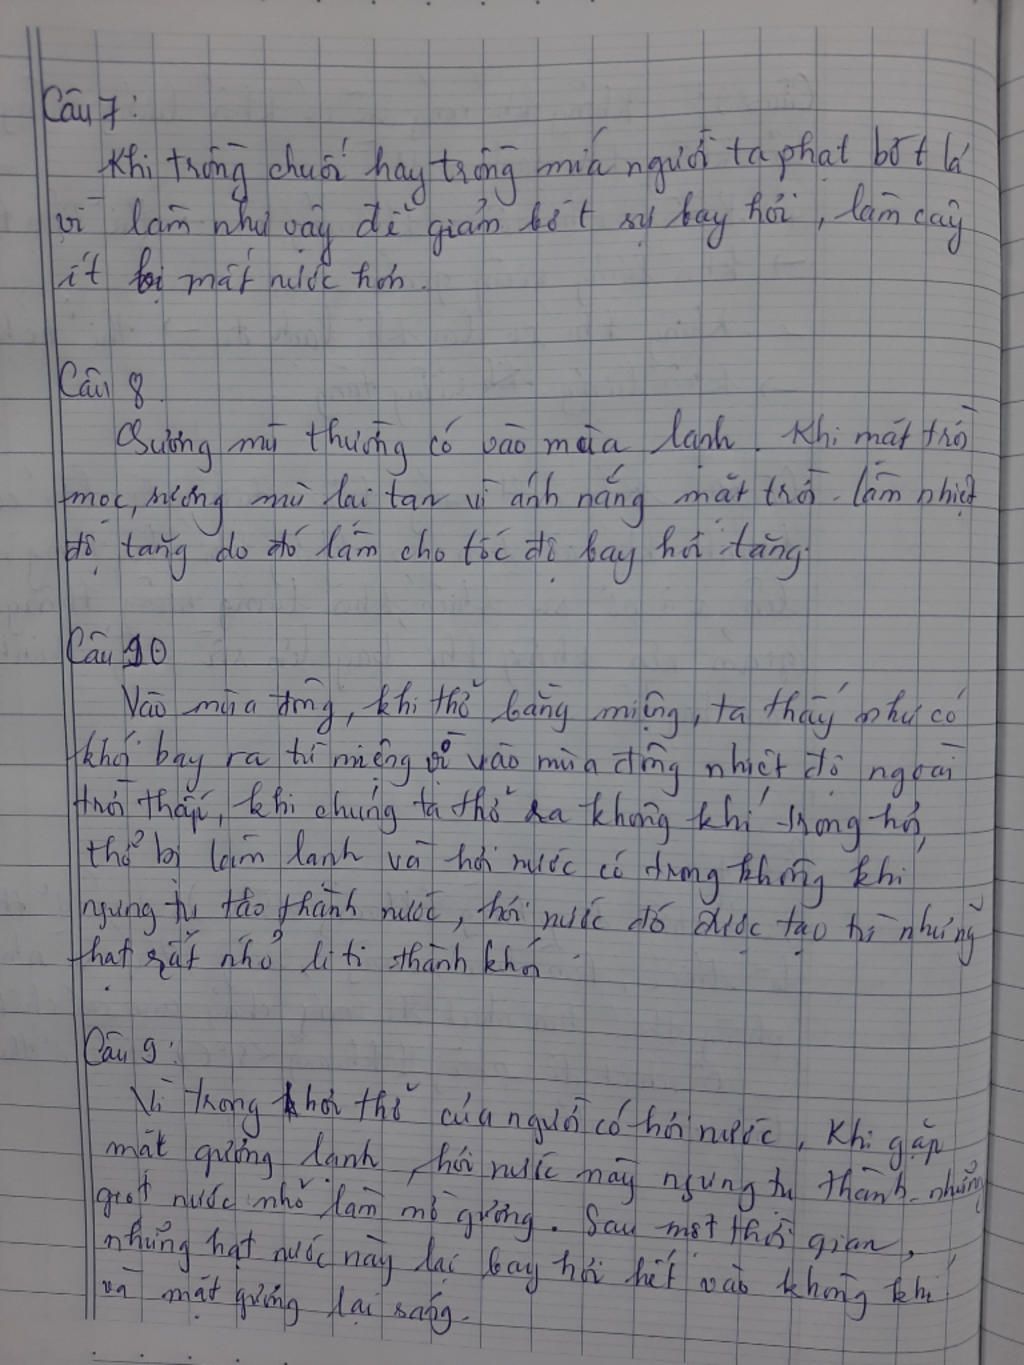 Câu 7:
Khi trồng chuối hay trồng mía người ta phạt bớt lá
vì làm như vậy để giảm bớt sự bay hơi, làm cây
ít bị mất nước hơn.
Câu 8
Sương mù thường có vào mùa lạnh. Khi mặt trời
mọc, sương mù lại tan vì ánh nắng mặt trời làm nhiệt
độ tăng do đó làm cho tốc độ bay hơi tăng.
Câu 10
Vào mùa đông, khi thở bằng miệng, ta thấy như có
khói bay ra từ miệng vì vào mùa đông nhiệt độ ngoài
trời thấp, khi chúng ta thở ra không khí trong hơi
thở bị làm lạnh và hơi nước có trong không khí
ngưng tụ tạo thành nước, hơi nước đó được tạo từ những
hạt rất nhỏ li ti thành khói.
Câu 9:
Vì trong hơi thở của người có hơi nước. Khi gặp
mặt gương lạnh, hơi nước này ngưng tụ thành những
giọt nước nhỏ làm mờ gương. Sau một thời gian,
những hạt nước này lại bay hơi hết vào không khí
và mặt gương lại sáng.